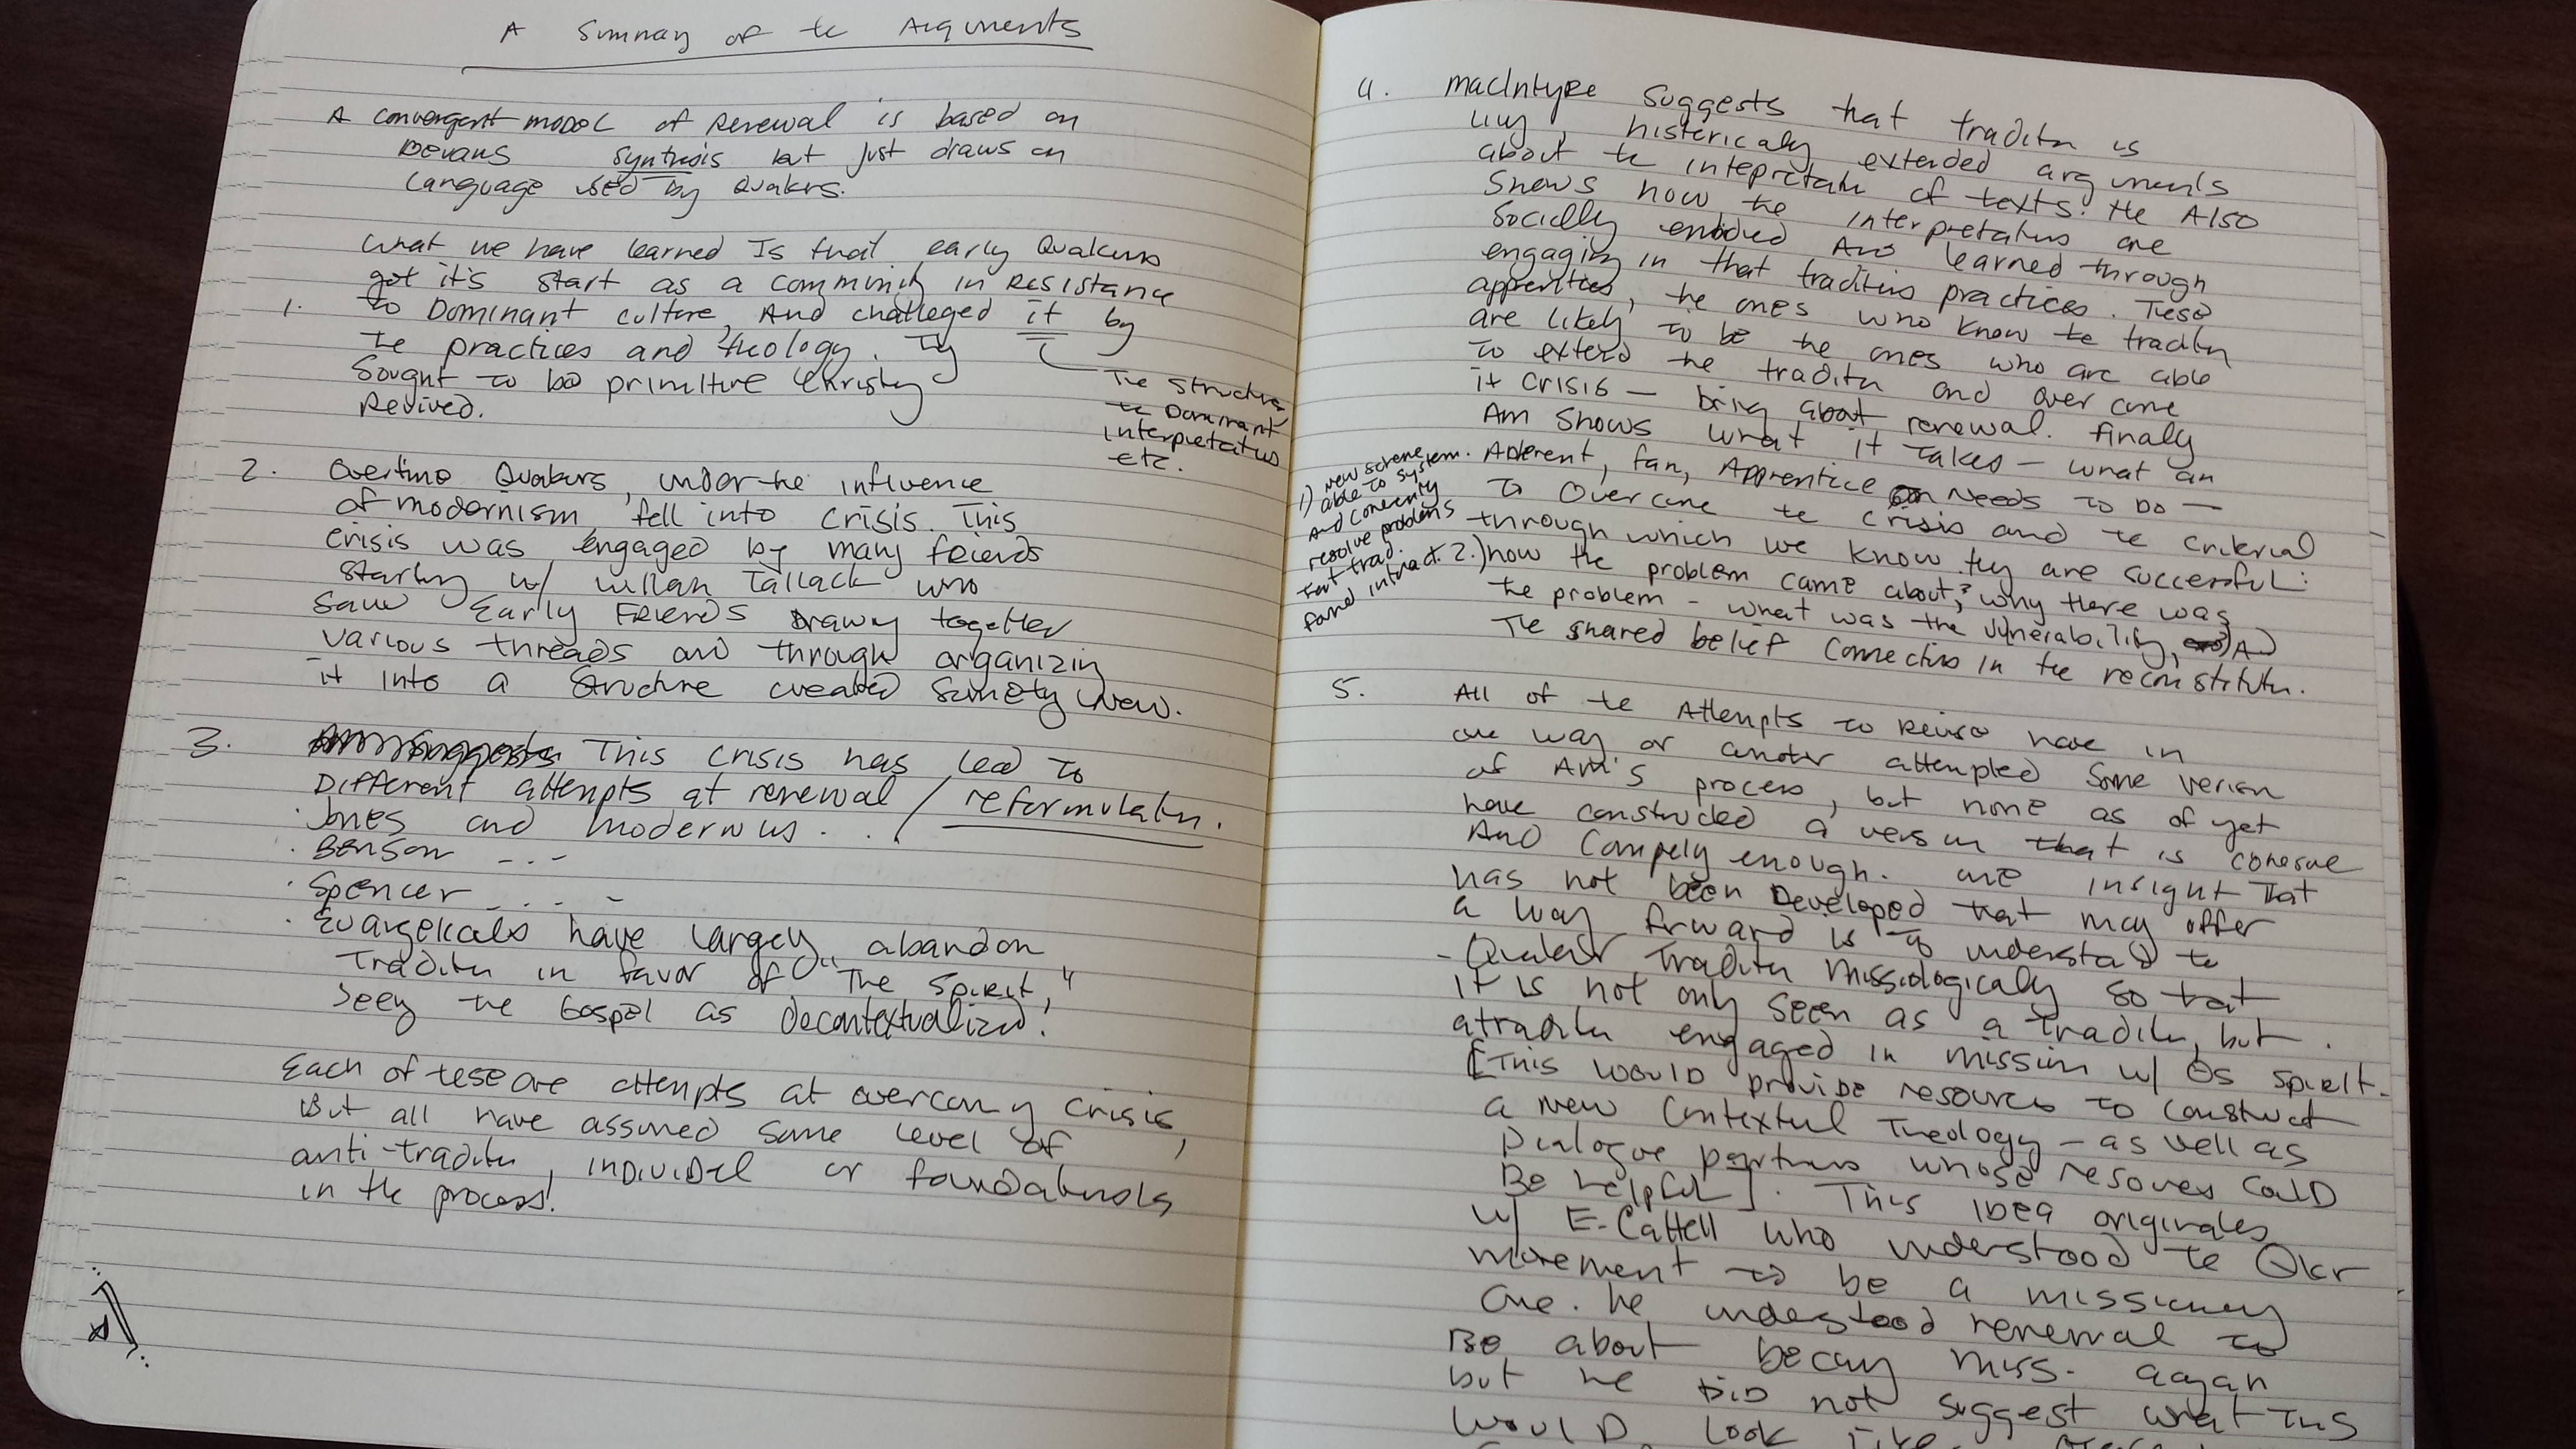 A Summay of te Arguments
A convergent model of Renewal is based on
Bevans synthesis but just draws on
language used by Quakrs.
What we have learned Is that early Quakers
got it's start as a comminity in Resistance
1. to Dominant culture, And challeged it by
te practices and theology. Ty
Sought to be primitive Christny
Revived.
The Structures
te Dominant
interpretatus
etc.
2. Overtime Quakers, under the influence
of modernism, fell into crisis. This
crisis was engaged by many friends
starting w/ Willian Tallack who
saw Early Friends Drawing together
various threads and through organizing
it into a structure created Somety new.
3. This crisis has lead to
Different attempts at renewal / reformulatn.
· Jones and modernus...
· Benson ---
· Spencer ....-
· Evangelicals have largely abandon
Traditn in favor of "The Spirit,"
seeg the Gospel as decontextualized.
Each of tese are attempts at overcomng crisis,
But all have assumed some level of
anti-traditn, individel or foundatnols
in the process!
4. MacIntyre suggests that traditn is
livg, historicaly extended arguments
about te intepretatn of texts. He Also
Shows how the interpretatus are
Socially embodied And learned through
engaging in that traditins practices. These
apprentices, the ones who know te traditn
are likely to be the ones who are able
to extend the traditn and over come
it crisis — bring about renewal. Finaly
Am shows what it takes — what an
Adherent, fan, Apprentice Needs to Do —
To Overcome te crisis and te criteria
through which we know they are successful:
1) new scheme
able to system.
And coherently
resolve problems
found intract.
2.) how the problem came about? why there was
the problem - what was the vulnerability, And
The shared belief Connectins in the reconstitutn.
5. All of te Attempts to Revise have in
one way or anoter attempted some verion
of AM's process, but none as of yet
have constructed a versin that is cohesive
And Compely enough. one insight that
has not been Developed that may offer
a way forward is to understand te
- Quaker Traditn Missiologically so that
it is not only seen as a traditn, but
a traditn engaged in missin w/ Gs Spirit.
[This would provide resources to construct
a new Contextul Theology — as well as
Dialogue partners whose resoures could
Be helpful]. This idea originates
w/ E. Cattell who understood te Qkr
movement to be a missionary
one. he understood renewal to
Be about becomg miss. again
but he did not suggest what this
would look like.